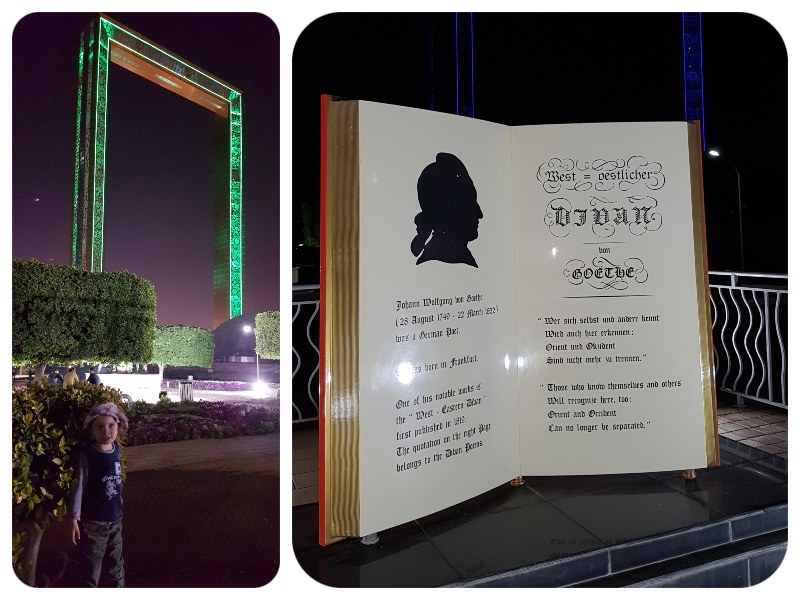 Johann Wolfgang von Goethe
(28 August 1749 - 22 March 1832)
was a German Poet.
born in Frankfurt.
One of his notable works is
the " West - Eastern Divan "
first published in 1819.
The quotation on the right Page
belongs to the Divan Poems
West = oestlicher
DIVAN
von
GOETHE
" Wer sich selbst und andere kennt
Wird auch hier erkennen:
Orient und Okzident
Sind nicht mehr zu trennen. "
" Those who know themselves and others
Will recognize here, too:
Orient and Occident
Can no longer be separated. "